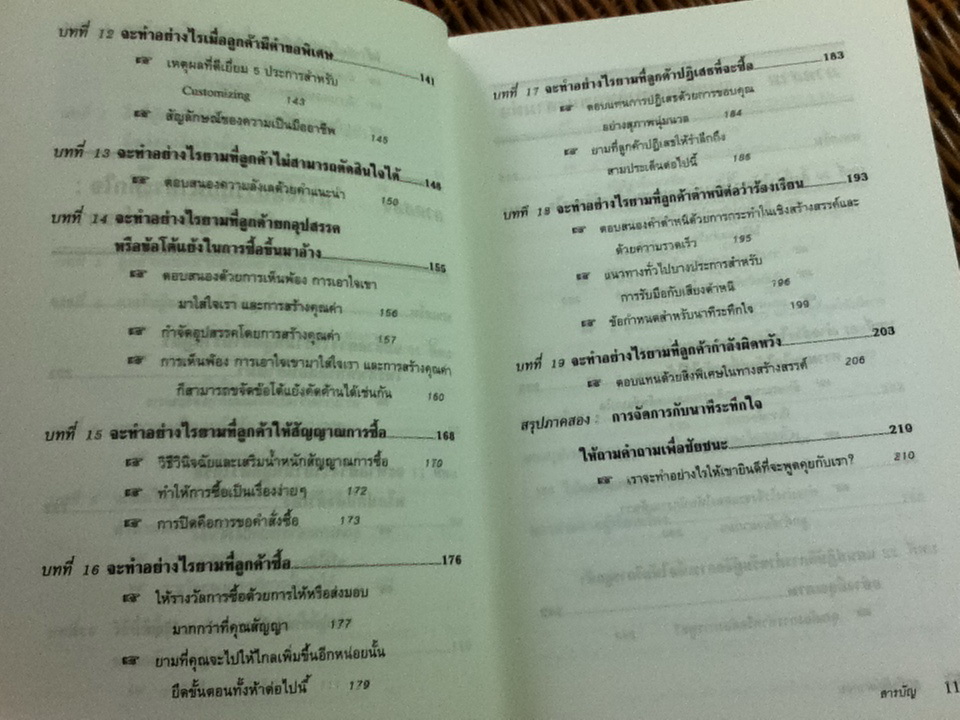 บทที่ 12 จะทำอย่างไรเมื่อลูกค้ามีคำขอพิเศษ 141
เหตุผลที่ดีเยี่ยม 5 ประการสำหรับ
Customizing 143
สัญลักษณ์ของความเป็นมืออาชีพ 145
บทที่ 13 จะทำอย่างไรยามที่ลูกค้าไม่สามารถตัดสินใจได้ 148
ตอบสนองความลังเลด้วยคำแนะนำ 150
บทที่ 14 จะทำอย่างไรยามที่ลูกค้ายกอุปสรรค
หรือข้อโต้แย้งในการซื้อขึ้นมาอ้าง 155
ตอบสนองด้วยการเห็นพ้อง การเอาใจเขา
มาใส่ใจเรา และการสร้างคุณค่า 156
กำจัดอุปสรรคโดยการสร้างคุณค่า 157
การเห็นพ้อง การเอาใจเขามาใส่ใจเรา และการสร้างคุณค่า
ก็สามารถขจัดข้อโต้แย้งคัดค้านได้เช่นกัน 160
บทที่ 15 จะทำอย่างไรยามที่ลูกค้าให้สัญญาณการซื้อ 168
วิธีวินิจฉัยและเสริมน้ำหนักสัญญาณการซื้อ 170
ทำให้การซื้อเป็นเรื่องง่ายๆ 172
การปิดคือการขอคำสั่งซื้อ 173
บทที่ 16 จะทำอย่างไรยามที่ลูกค้าซื้อ 176
ให้รางวัลการซื้อด้วยการให้หรือส่งมอบ
มากกว่าที่คุณสัญญา 177
ยามที่คุณจะไปให้ไกลเพิ่มขึ้นอีกหน่อยนั้น
ยึดขั้นตอนทั้งห้าต่อไปนี้ 179
บทที่ 17 จะทำอย่างไรยามที่ลูกค้าปฏิเสธที่จะซื้อ 183
ตอบแทนการปฏิเสธด้วยการขอบคุณ
อย่างสุภาพนุ่มนวล 184
ยามที่ลูกค้าปฏิเสธให้รำลึกถึง
สามประเด็นต่อไปนี้ 186
บทที่ 18 จะทำอย่างไรยามที่ลูกค้าตำหนิต่อว่าร้องเรียน 193
ตอบสนองคำตำหนิด้วยการกระทำในเชิงสร้างสรรค์และ
ด้วยความรวดเร็ว 195
แนวทางทั่วไปบางประการสำหรับ
การรับมือกับเสียงตำหนิ 196
ข้อกำหนดสำหรับนาทีระทึกใจ 199
บทที่ 19 จะทำอย่างไรยามที่ลูกค้ากำลังผิดหวัง 203
ตอบแทนด้วยสิ่งพิเศษในทางสร้างสรรค์ 206
สรุปภาคสอง : การจัดการกับนาทีระทึกใจ
ให้ถามคำถามเพื่อชัยชนะ 210
เราจะทำอย่างไรให้เขายินดีที่จะพูดคุยกับเรา? 210
สารบัญ 11